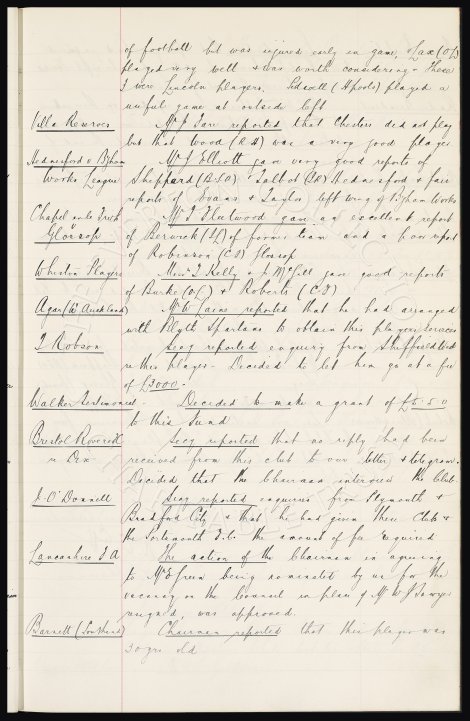 of football but was injured early in game, Lax (OL)
played very well & was worth considering. These
3 were Lincoln players. Lidwell (Hpools) played a
useful game at outside left
Villa Reserves Mr J Tarr reported that Chesters did not play
but that Wood (RH) was a very good player
Hednesford v Bgham Works League Mr J Elliott gave very good reports of
Sheppard (OSO) & Talbot (IR) Hednesford & fair
reports of Evans & Taylor, left wing of Bgham Works
Chapel en le Frith v Glossop Mr J Fleetwood gave an excellent report
of Berwick (IL) of former team and a poor report
of Robinson (CF) Glossop
Wheston Players Messrs J Kelly & J McGill gave good reports
of Burke (OL) & Roberts (CF)
Agar (W Auckland) Mr W Cains reported that he had arranged
with Blyth Spartans to obtain this players services
J Robson Secy reported enquiry from Sheffield Utd
re this player. Decided to let him go at a fee
of £3000.
Walker Testimonial. Decided to make a grant of £5.5.0
to this fund
Bristol Rovers re Dix Secy reported that no reply had been
received from this club to our letter & telegram.
Decided that the Chairman interview the Club.
J. O'Donnell Secy reported enquiries from Plymouth &
Bradford City & that he had given these Clubs &
the Portsmouth F.C. the amount of fee required
Lancashire F A The action of the Chairman in agreeing
to Mr E Green being nominated by us for the
vacancy on the Council in place of Mr W J Sawyer
resigned, was approved.
Barnett (Southend) Chairman reported that this player was
30 yrs old